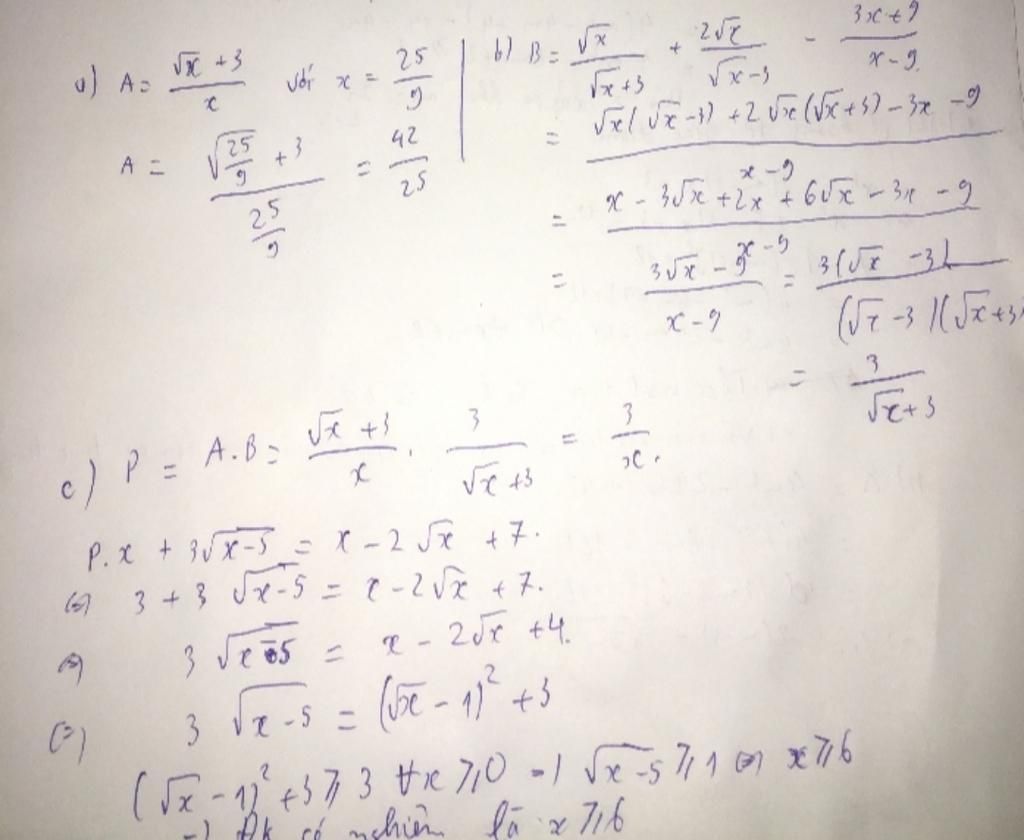 a) A = (√x + 3)/x với x = 25/9
A = (√(25/9) + 3)/(25/9) = 42/25
b) B = √x/(√x+3) + 2√x/(√x-3) - (3x+9)/(x-9)
= (√x(√x-3) + 2√x(√x+3) - 3x - 9)/(x-9)
= (x - 3√x + 2x + 6√x - 3x - 9)/(x-9)
= (3√x - 9)/(x-9) = 3(√x - 3)/((√x-3)(√x+3)
= 3/(√x+3)
c) P = A.B = (√x+3)/x . 3/(√x+3) = 3/x.
P.x + 3√(x-5) = x - 2√x + 7.
⇔ 3 + 3√(x-5) = x - 2√x + 7.
⇔ 3√(x-5) = x - 2√x + 4.
⇔ 3√(x-5) = (√x - 1)² + 3
(√x - 1)² + 3 ⩾ 3 ∀x ⩾ 0 → √(x-5) ⩾ 1 ⇔ x ⩾ 6
→ ĐK có nghiệm là x ⩾ 6